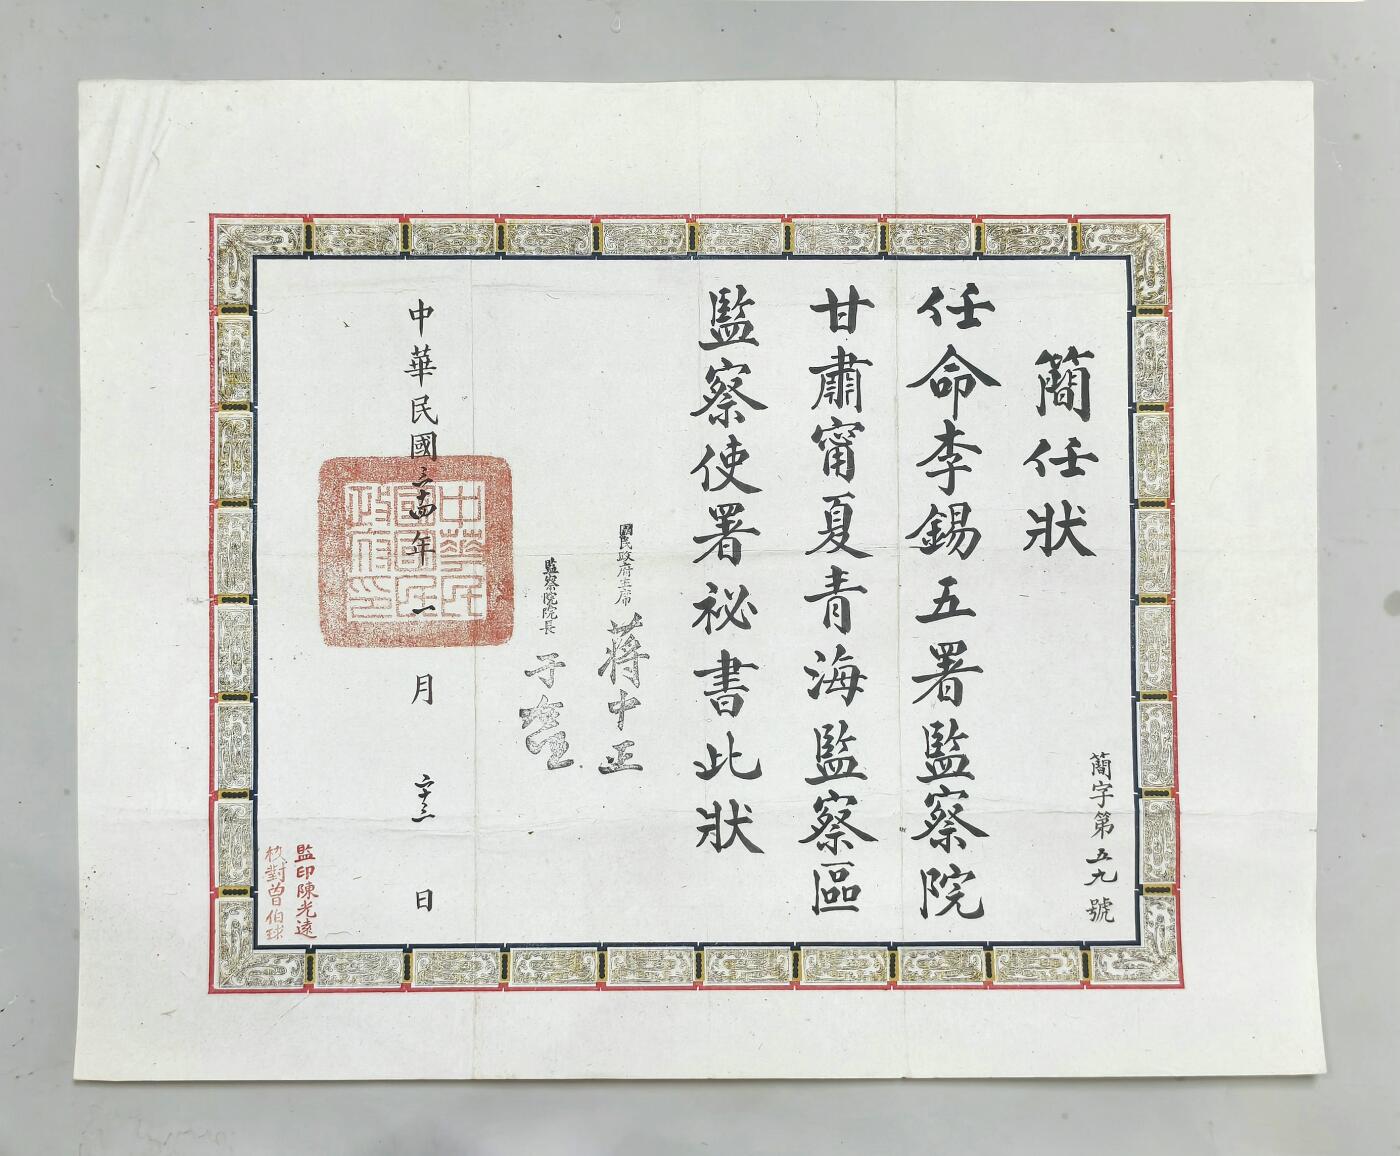 簡任狀
簡字第五九號
任命李錫五署監察院
甘肅甯夏青海監察區
監察使署祕書此狀
國民政府主席 蔣中正
監察院院長 于右任
中華民國三十四年一月二十三日
中華民國國民政府印
監印陳光遠
校對曾伯球